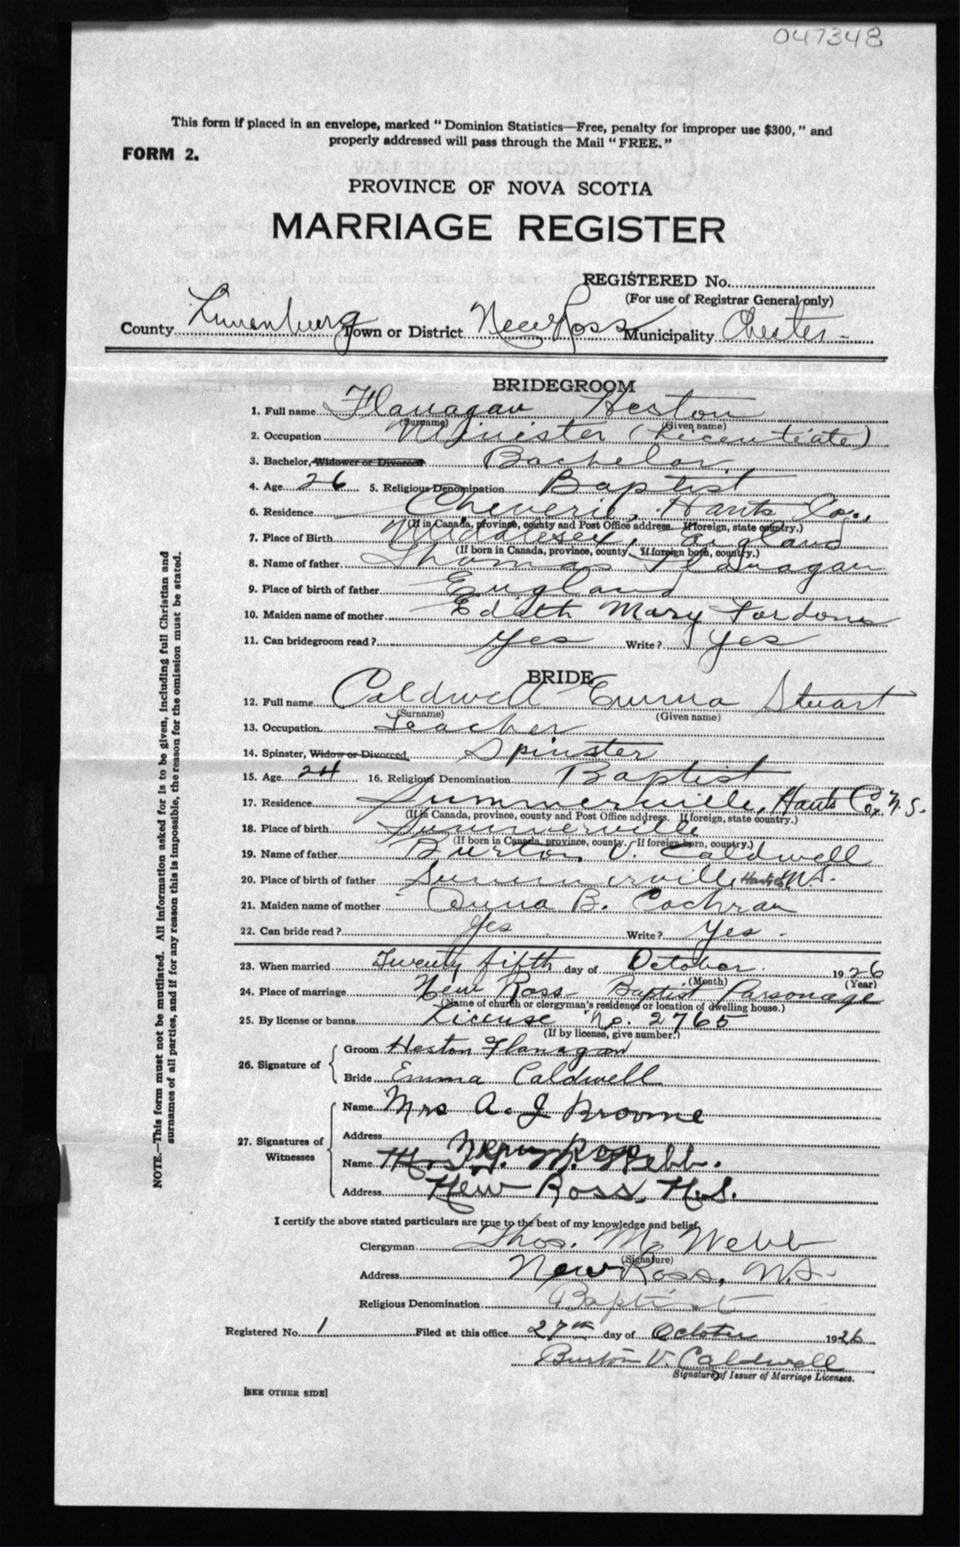 047348
This form if placed in an envelope, marked "Dominion Statistics—Free, penalty for improper use $300," and
properly addressed will pass through the Mail "FREE."
FORM 2.
PROVINCE OF NOVA SCOTIA
MARRIAGE REGISTER
REGISTERED No.
(For use of Registrar General only)
County Lunenburg Town or District New Ross Municipality Chester
BRIDEGROOM
1. Full name Flanagan Heston
(Surname) (Given name)
2. Occupation Minister (Licentiate)
3. Bachelor, Widower or Divorced Bachelor
4. Age 26 5. Religious Denomination Baptist
6. Residence Cheverie, Hants Co.,
(If in Canada, province, county and Post Office address. If foreign, state country.)
7. Place of Birth Middlesex, England
(If born in Canada, province, county. If foreign born, country.)
8. Name of father Thomas Flanagan
9. Place of birth of father England
10. Maiden name of mother Edith Mary
11. Can bridegroom read? Yes Write? Yes
BRIDE
12. Full name Caldwell Emma Stuart
(Surname) (Given name)
13. Occupation Teacher
14. Spinster, Widow or Divorced Spinster
15. Age 24 16. Religious Denomination Baptist
17. Residence Summerville, Hants Co, N.S.
(If in Canada, province, county and Post Office address. If foreign, state country.)
18. Place of birth Summerville
(If born in Canada, province, county. If foreign born, country.)
19. Name of father Burton V. Caldwell
20. Place of birth of father Summerville Hants Co N.S.
21. Maiden name of mother Anna B. Cochran
22. Can bride read? Yes Write? Yes.
23. When married Twenty fifth day of October 1926
(Month) (Year)
24. Place of marriage New Ross Baptist Parsonage
(Name of church or clergyman's residence or location of dwelling house.)
25. By license or banns License No. 2765
(If by license, give number.)
26. Signature of
Groom Heston Flanagan
Bride Emma Caldwell
27. Signatures of Witnesses
Name Mrs A. J Broome
Address New Ross
Name W. Webb.
Address New Ross, N.S.
I certify the above stated particulars are true to the best of my knowledge and belief.
Clergyman Thos. M. Webb
(Signature)
Address New Ross, N.S.
Religious Denomination Baptist
Registered No. 1 Filed at this office 27th day of October 1926
Burton V. Caldwell
Signature of Issuer of Marriage Licenses.
[SEE OTHER SIDE]
NOTE.—This form must not be mutilated. All information asked for is to be given, including full Christian and
surnames of all parties, and if for any reason this is impossible, the reason for the omission must be stated.